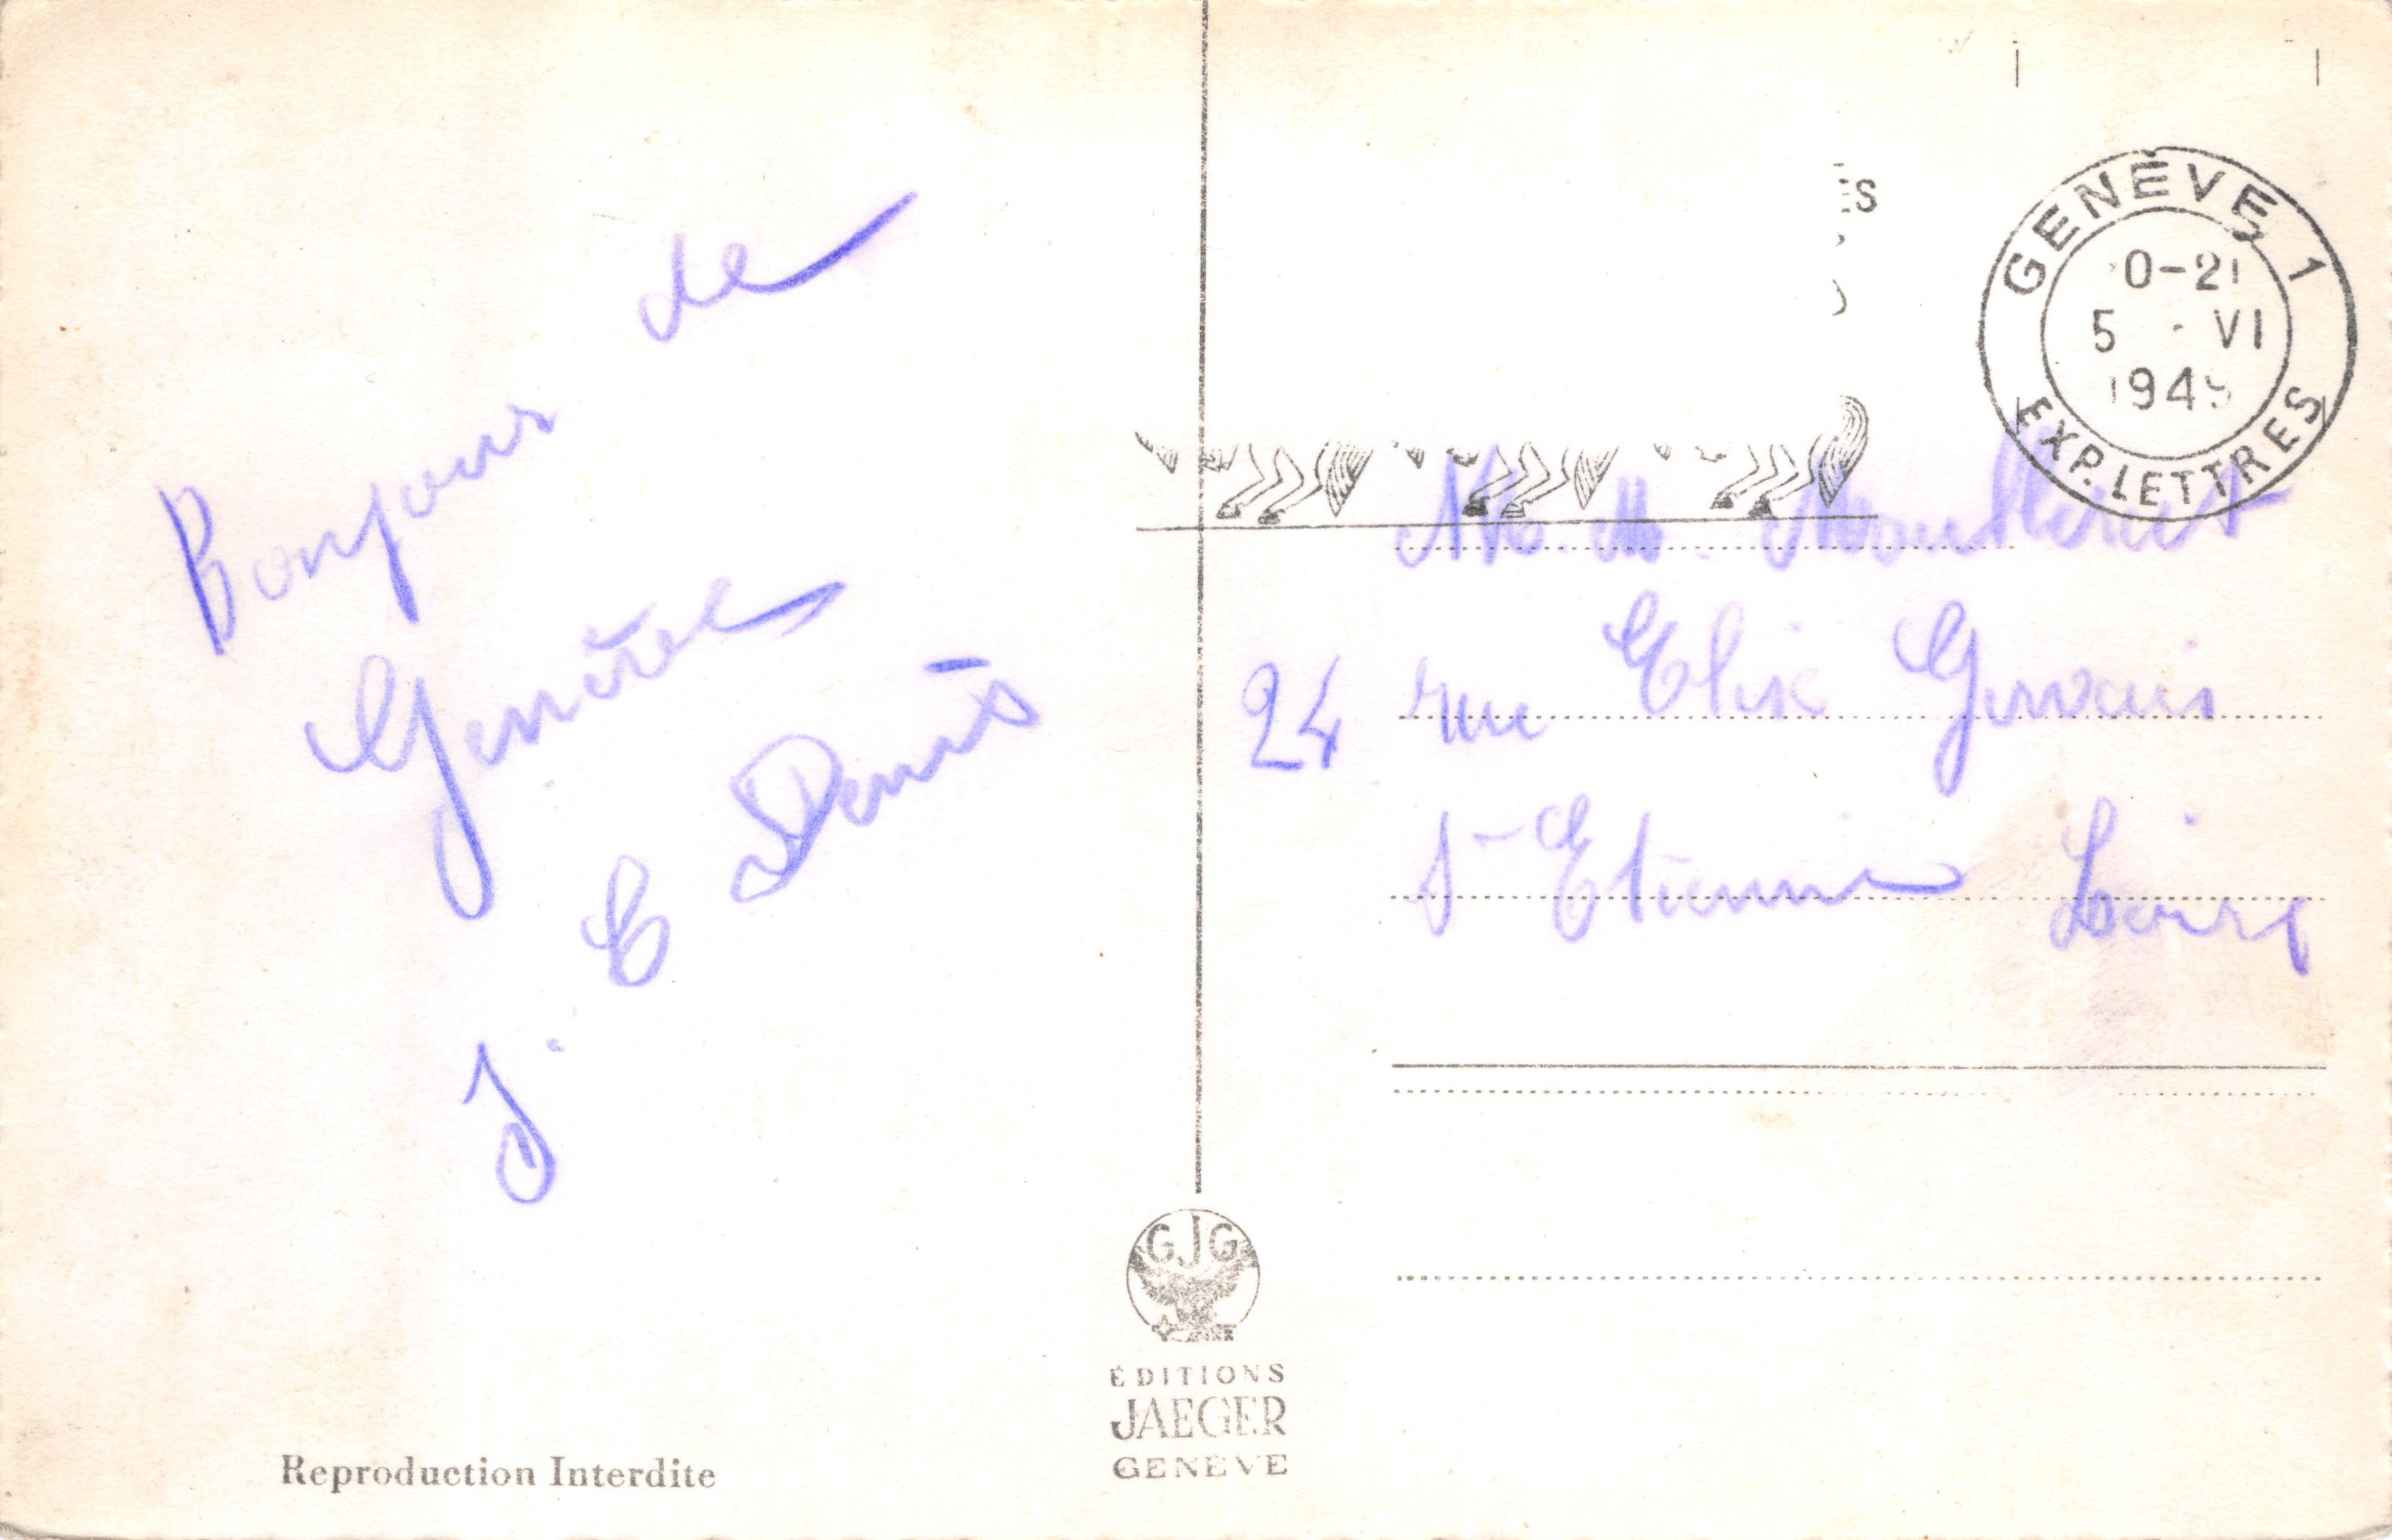 Bonjour de
Genève
J. C Denis
ES
GENÈVE 1
0-21
5 · VI
1949
EXP. LETTRES
24 rue Elise Gervais
St Etienne Loire
GJG
ÉDITIONS
JAEGER
GENÈVE
Reproduction Interdite